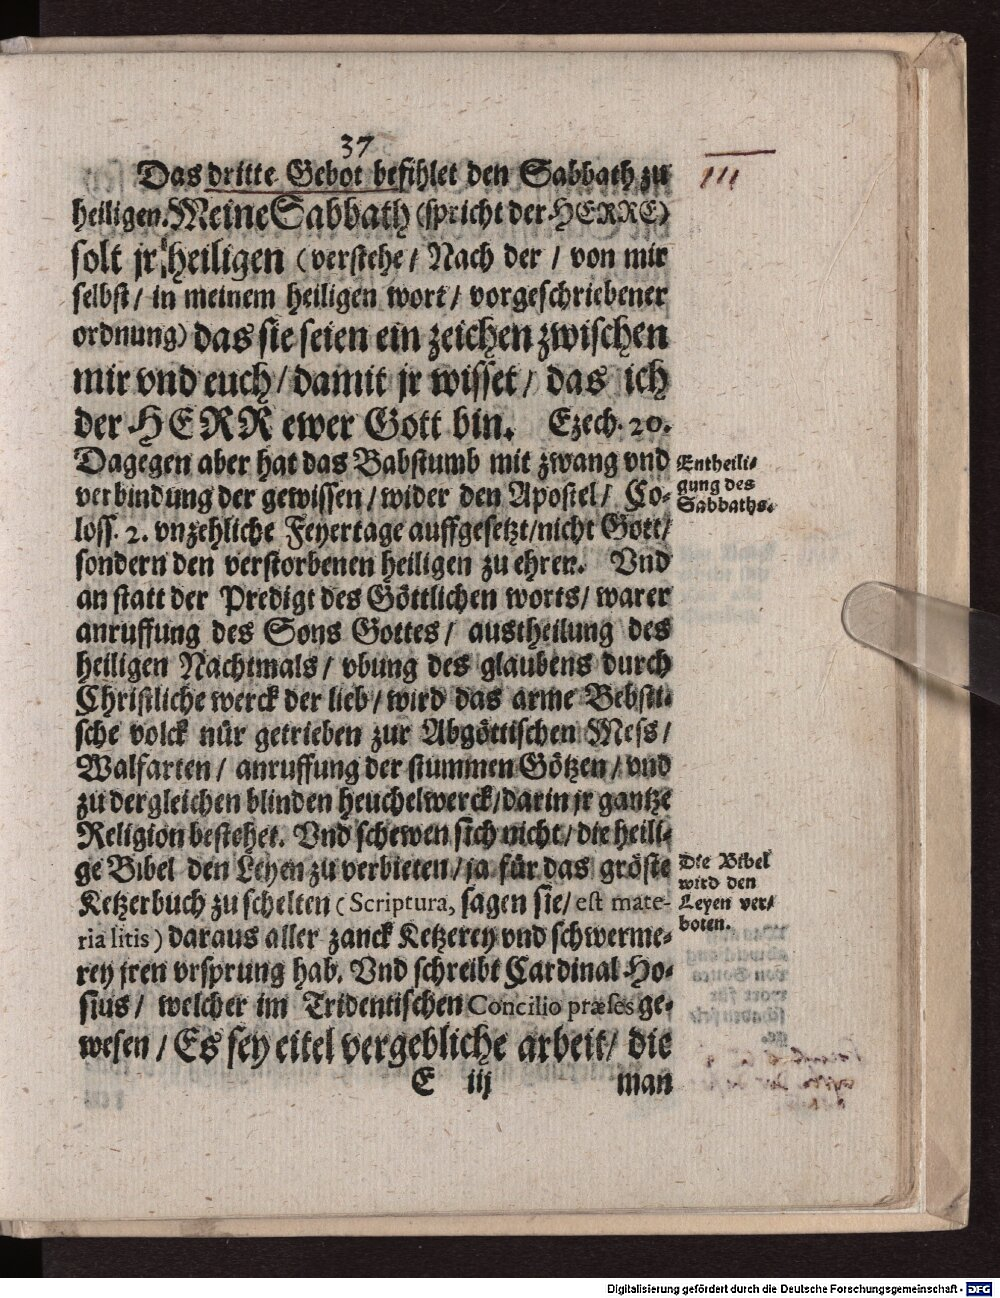 37
Das dritte Gebot befihlet den Sabbath zu
III
heiligen. Meine Sabbath (spricht der HERRE)
solt jr heiligen (verstehe/ Nach der/ von mir
selbst/ in meinem heiligen wort/ vorgeschriebener
ordnung) das sie seien ein zeichen zwischen
mir vnd euch/ damit jr wisset/ das ich
der HERR ewer Gott bin. Ezech. 20.
Dagegen aber hat das Babstumb mit zwang vnd
verbindung der gewissen/ wider den Apostel/ Co-
loss. 2. vnzehliche Feyertage auffgesetzt/ nicht Gott/
sondern den verstorbenen heiligen zu ehren. Vnd
an statt der Predigt des Göttlichen worts/ warer
anruffung des Sons Gottes/ austheilung des
heiligen Nachtmals/ vbung des glaubens durch
Christliche werck der lieb/ wird das arme Bebsti-
sche volck nůr getrieben zur Abgöttischen Mess/
Walfarten/ anruffung der stummen Götzen/ vnd
zu dergleichen blinden heuchelwerck/ darin jr gantze
Religion bestehet. Vnd schewen sich nicht/ die heili-
ge Bibel den Leyen zu verbieten/ ja für das gröste
Ketzerbuch zu schelten (Scriptura, sagen sie/ est mate-
ria litis) daraus aller zanck Ketzerey vnd schwerme-
rey jren vrsprung hab. Vnd schreibt Cardinal Ho-
sius/ welcher im Tridentischen Concilio præses ge-
wesen/ Es sey eitel vergebliche arbeit/ die
E iij man
Entheili-
gung des
Sabbaths.
Die Bibel
wird den
Leyen ver-
boten.
Digitalisierung gefördert durch die Deutsche Forschungsgemeinschaft - DFG